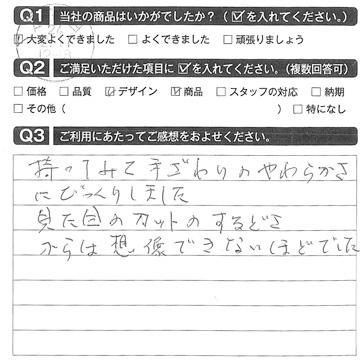 Q1 当社の商品はいかがでしたか？（☑を入れてください。）
☑大変よくできました □よくできました □頑張りましょう
Q2 ご満足いただけた項目に☑を入れてください。（複数回答可）
□価格 □品質 ☑デザイン ☑商品 □スタッフの対応 □納期
□その他（ ）□特になし
Q3 ご利用にあたってご感想をおよせください。
持ってみて手ざわりのやわらかさ
にびっくりしました
見た目のカットのするどさ
からは想像できないほどでした